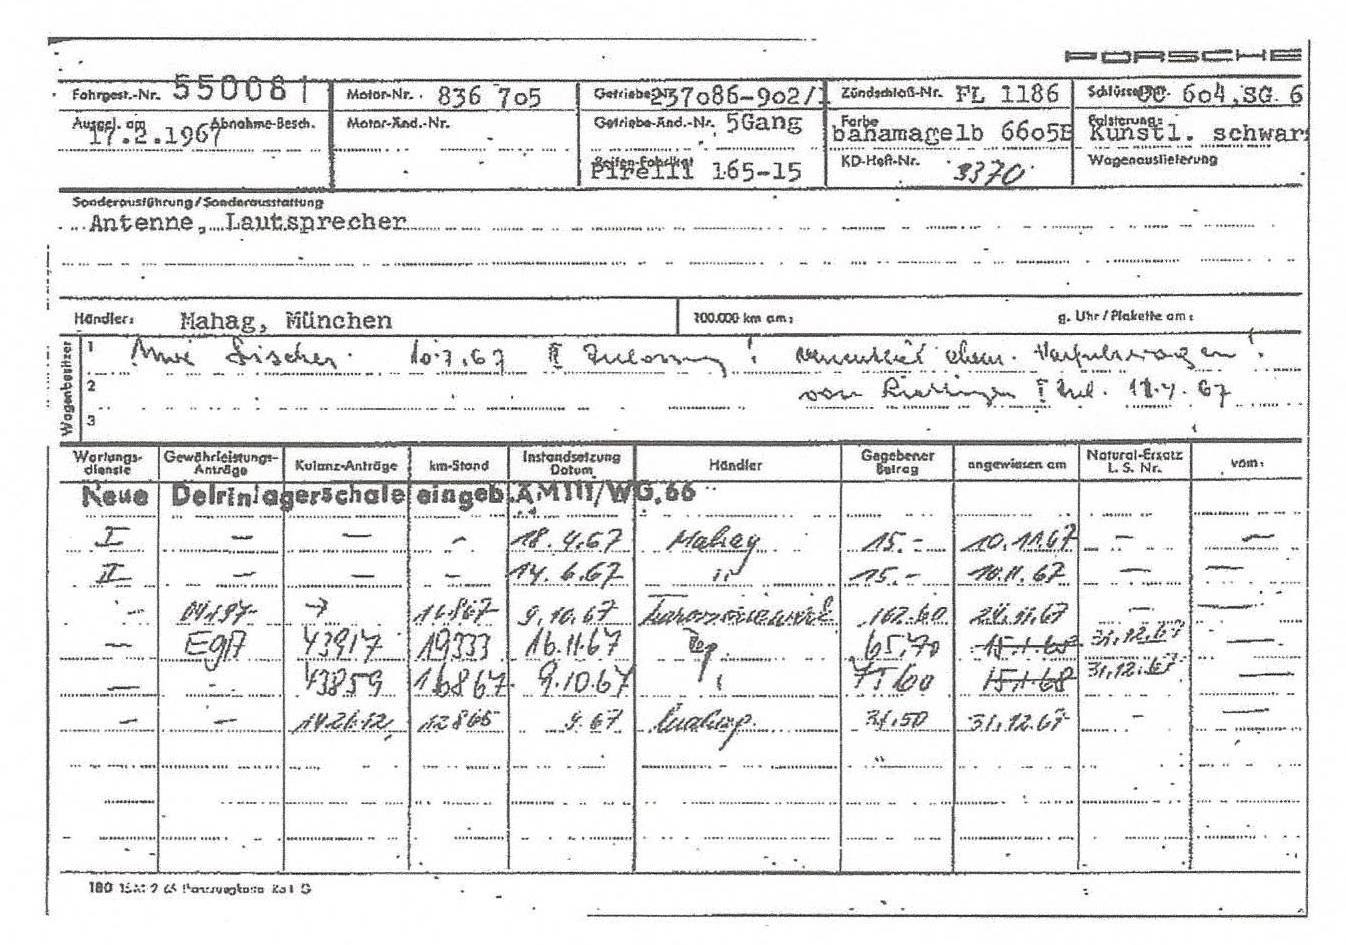 PORSCHE
Fahrgest.-Nr. 550081 Motor-Nr. 836 705 Getriebe-Nr. 237086-902/1 Zündschloß-Nr. FL 1186 604, SG 6
Ausgel. am 17.2.1967 Abnahme-Besch. Motor-Änd.-Nr. Getriebe-Änd.-Nr. 5Gang Farbe bahamagelb 6605B Polsterung: Kunstl. schwar
Reifen-Fabrikat Pirelli 165-15 KD-Heft-Nr. 3370 Wagenauslieferung
Sonderausführung/Sonderausstattung
Antenne, Lautsprecher
Händler: Mahag, München 100.000 km am: g. Uhr/Plakette am:
Wagenbesitzer
1 10.7.67 II Zulassung!
2 I Zul.
3
Wartungs-dienste Gewährleistungs-Anträge Kulanz-Anträge km-Stand Instandsetzung Datum Händler Gegebener Betrag angewiesen am Natural-Ersatz L. S. Nr. vom:
Neue Delrinlagerschale eingeb. AM III/WG.66
I — — - 18.4.67 Mahag 15.- 10.11.67 — —
II — — — 14.6.67 " 15.- 10.11.67 — —
- → 16867 9.10.67 162.60 24.11.67 — —
— 43917 19333 16.11.67 65,70 15.1.68 31.12.67 —
— - 43859 16867 9.10.67 75,60 15.1.68 31.12.67 —
— — 12865 9.67 31.50 31.12.67 - —
180